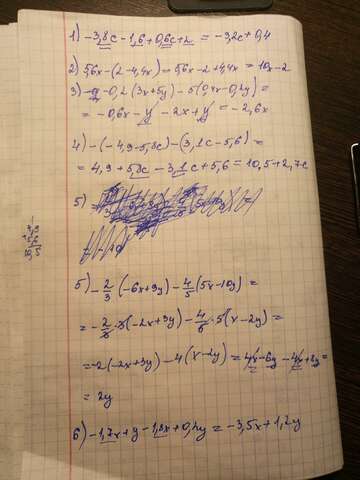 1) -3,8c - 1,6 + 0,6c + 2 = -3,2c + 0,4
2) 5,6x - (2 - 4,4x) = 5,6x - 2 + 4,4x = 10x - 2
3) -0,2(3x + 5y) - 5(0,4x - 0,2y) =
= -0,6x - y - 2x + y = -2,6x
4) -(-4,9 - 5,8c) - (3,1c - 5,6) =
= 4,9 + 5,8c - 3,1c + 5,6 = 10,5 + 2,7c
5)
5) -2/3(-6x + 9y) - 4/5(5x - 10y) =
= -2/3 · 3(-2x + 3y) - 4/5 · 5(x - 2y) =
= -2(-2x + 3y) - 4(x - 2y) = 4x - 6y - 4x + 8y =
= 2y
6) -1,7x + y - 1,8x + 0,2y = -3,5x + 1,2y